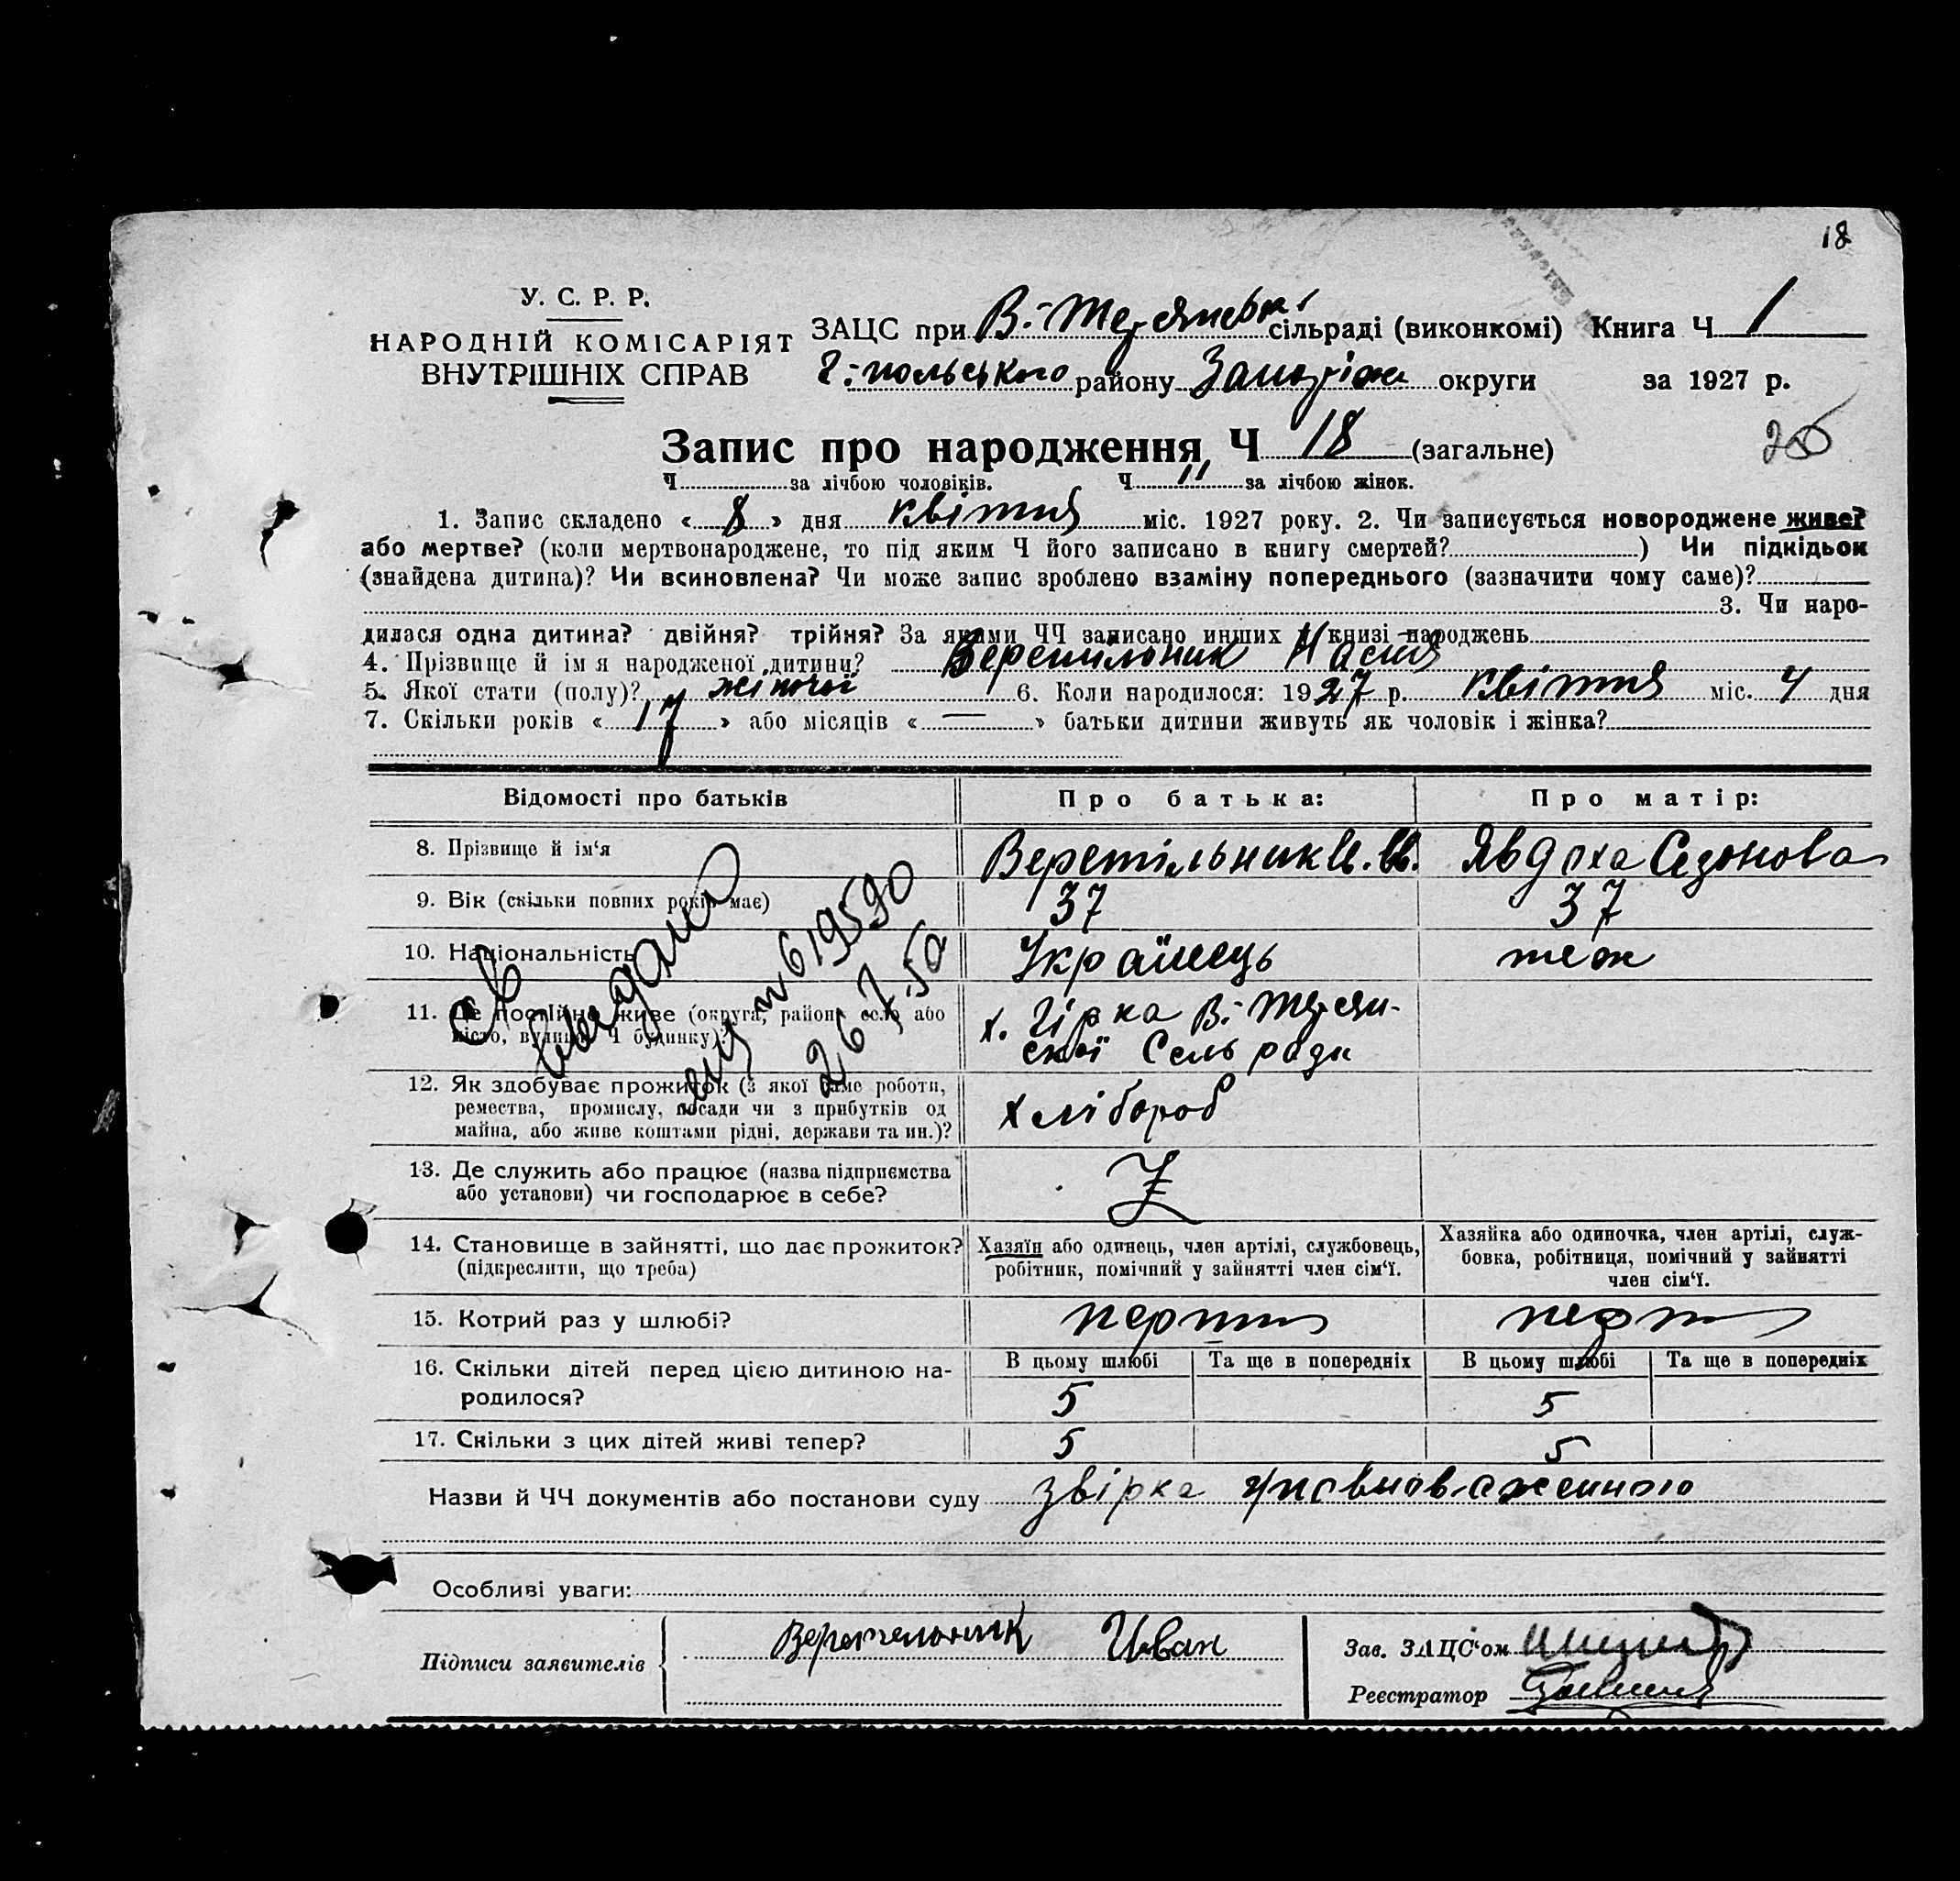 18
У. С. Р. Р.
НАРОДНІЙ КОМІСАРІЯТ
ВНУТРІШНІХ СПРАВ
ЗАЦС при сільраді (виконкомі) Книга Ч 1
польського району округи за 1927 р.
Запис про народження Ч 18 (загальне)
Ч за лічбою чоловіків. Ч 11 за лічбою жінок.
1. Запис складено « 8 » дня квітня міс. 1927 року. 2. Чи записується новороджене живе?
або мертве? (коли мертвонароджене, то під яким Ч його записано в книгу смертей? ) Чи підкідьок
(знайдена дитина)? Чи всиновлена? Чи може запис зроблено взаміну попереднього (зазначити чому саме)?
3. Чи наро-
дилася одна дитина? двійня? трійня? За якими ЧЧ записано инших у книзі народжень
4. Прізвище й ім я народженої дитини? Веретільник Настя
5. Якої стати (полу)? жіночої 6. Коли народилося: 1927 р. квітня міс. 4 дня
7. Скільки років « 17 » або місяців « — » батьки дитини живуть як чоловік і жінка?
Відомості про батьків Про батька: Про матір:
8. Прізвище й ім‘я Веретільник Явдоха
9. Вік (скільки повних років має) 37 37
10. Національність Українець теж
11. Де постійно живе (округа, район, село або
місто, вулиця, Ч будинку)? х. Гірка В.-
Сельради
12. Як здобуває прожиток (з якої саме роботи,
ремества, промислу, посади чи з прибутків од
майна, або живе коштами рідні, держави та ин.)? Хлібороб
619590
26 7.50
13. Де служить або працює (назва підприємства
або установи) чи господарює в себе?
14. Становище в зайнятті, що дає прожиток?
(підкреслити, що треба)
Хазяїн або одинець, член артілі, службовець,
робітник, помічний у зайнятті член сім‘ї.
Хазяйка або одиночка, член артілі, служ-
бовка, робітниця, помічний у зайнятті
член сім‘ї.
15. Котрий раз у шлюбі?
16. Скільки дітей перед цією дитиною на-
родилося?
В цьому шлюбі Та ще в попередніх В цьому шлюбі Та ще в попередніх
5 5
17. Скільки з цих дітей живі тепер? 5 5
Назви й ЧЧ документів або постанови суду звірка уповноваженного
Особливі уваги:
Підписи заявителів Веретельник Иван
Зав. ЗАЦС‘ом
Реєстратор